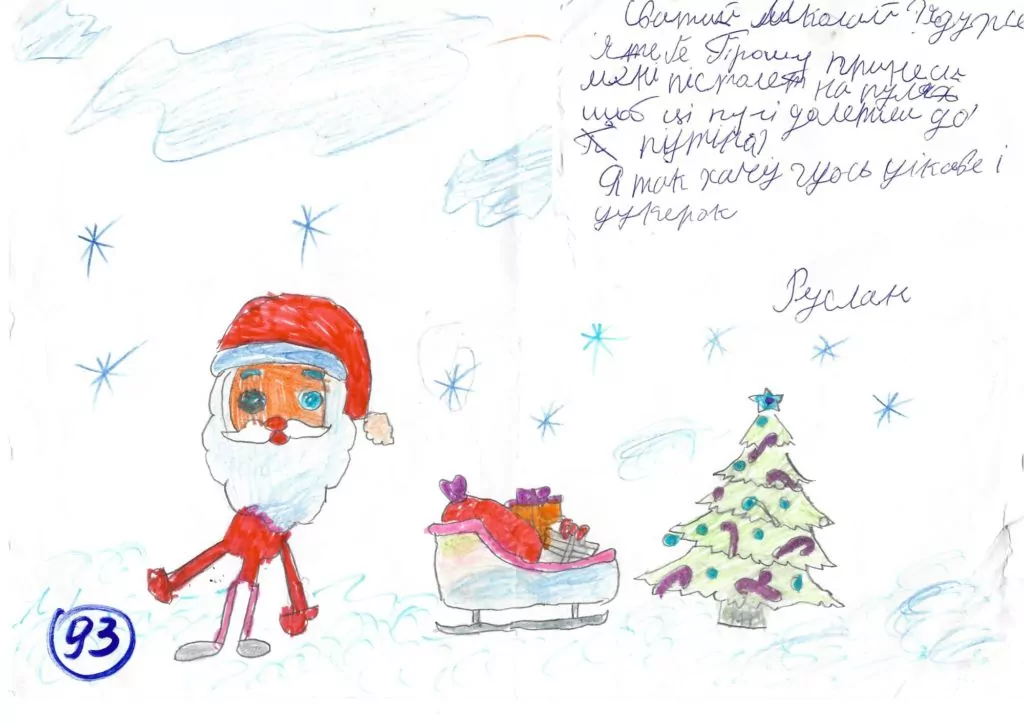 Святий Миколай Я дуже
я тебе Прошу принеси
мені пісталет на пулях
щоб ці пулі долетіли до
путіна
Я так хачу щось цікаве і
цукерок
Руслан
93